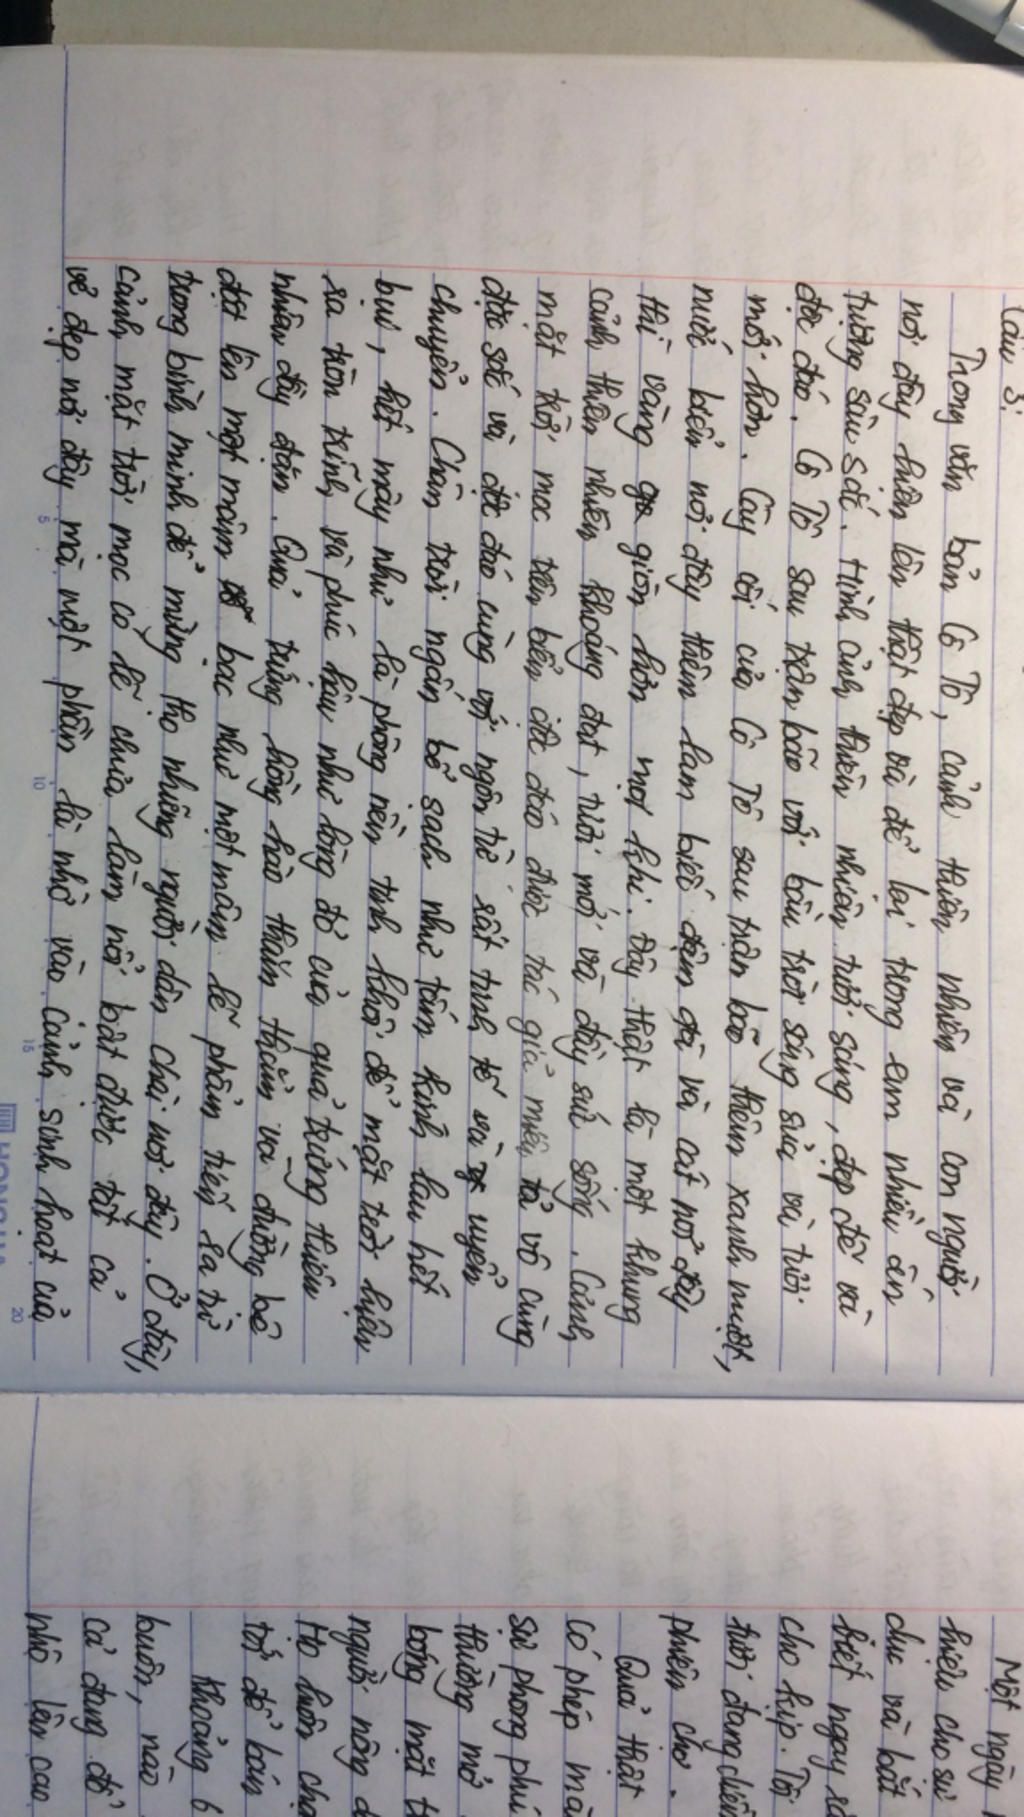 Câu 3:
Trong văn bản Cô Tô, cảnh thiên nhiên và con người
nơi đây hiện lên thật đẹp và để lại trong em nhiều ấn
tượng sâu sắc. Hình ảnh thiên nhiên tươi sáng, đẹp đẽ và
độc đáo. Cô Tô sau trận bão với bầu trời sáng sủa và tươi
mới hơn. Cây cối của Cô Tô sau trận bão thêm xanh mượt,
nước biển nơi đây thêm lam biếc đậm đà và cát nơi đây
thì vàng giòn hơn mọi khi. Đây thật là một khung
cảnh thiên nhiên khoáng đạt, tươi mới và đầy sức sống. Cảnh
mặt trời mọc trên biển độc đáo được tác giả miêu tả vô cùng
đặc sắc và độc đáo cùng với ngôn từ sất tinh tế và uyển
chuyển. Chân trời ngấn bể sạch như tấm kính lau hết
bụi, hết mây như là phông nền tinh khôi để mặt trời hiện
ra tròn trĩnh và phúc hậu như lòng đỏ của quả trứng thiên
nhiên đầy đặn. Quả trứng hồng hào thăm thẳm và đường bệ
đặt lên một mâm bạc như một mâm lễ phẩm tiến ra từ
trong bình minh để mừng thọ những người dân chài nơi đây. Ở đây,
cảnh mặt trời mọc có lẽ chưa làm nổi bật được tất cả
vẻ đẹp nơi đây mà một phần là nhờ vào cảnh sinh hoạt của
5 10 15 20
Một ngày
hiệu cho sự
dục và bắt
biết ngay
cho kịp. Tôi
tươi đang
phiên chợ.
Quả thật
có phép mà
sự phong phú
thường mở
bóng mặt
người nông
Họ luôn
tớ để bán
Khoảng 6
buôn, nào
cả đang đổ
nhô lên cao